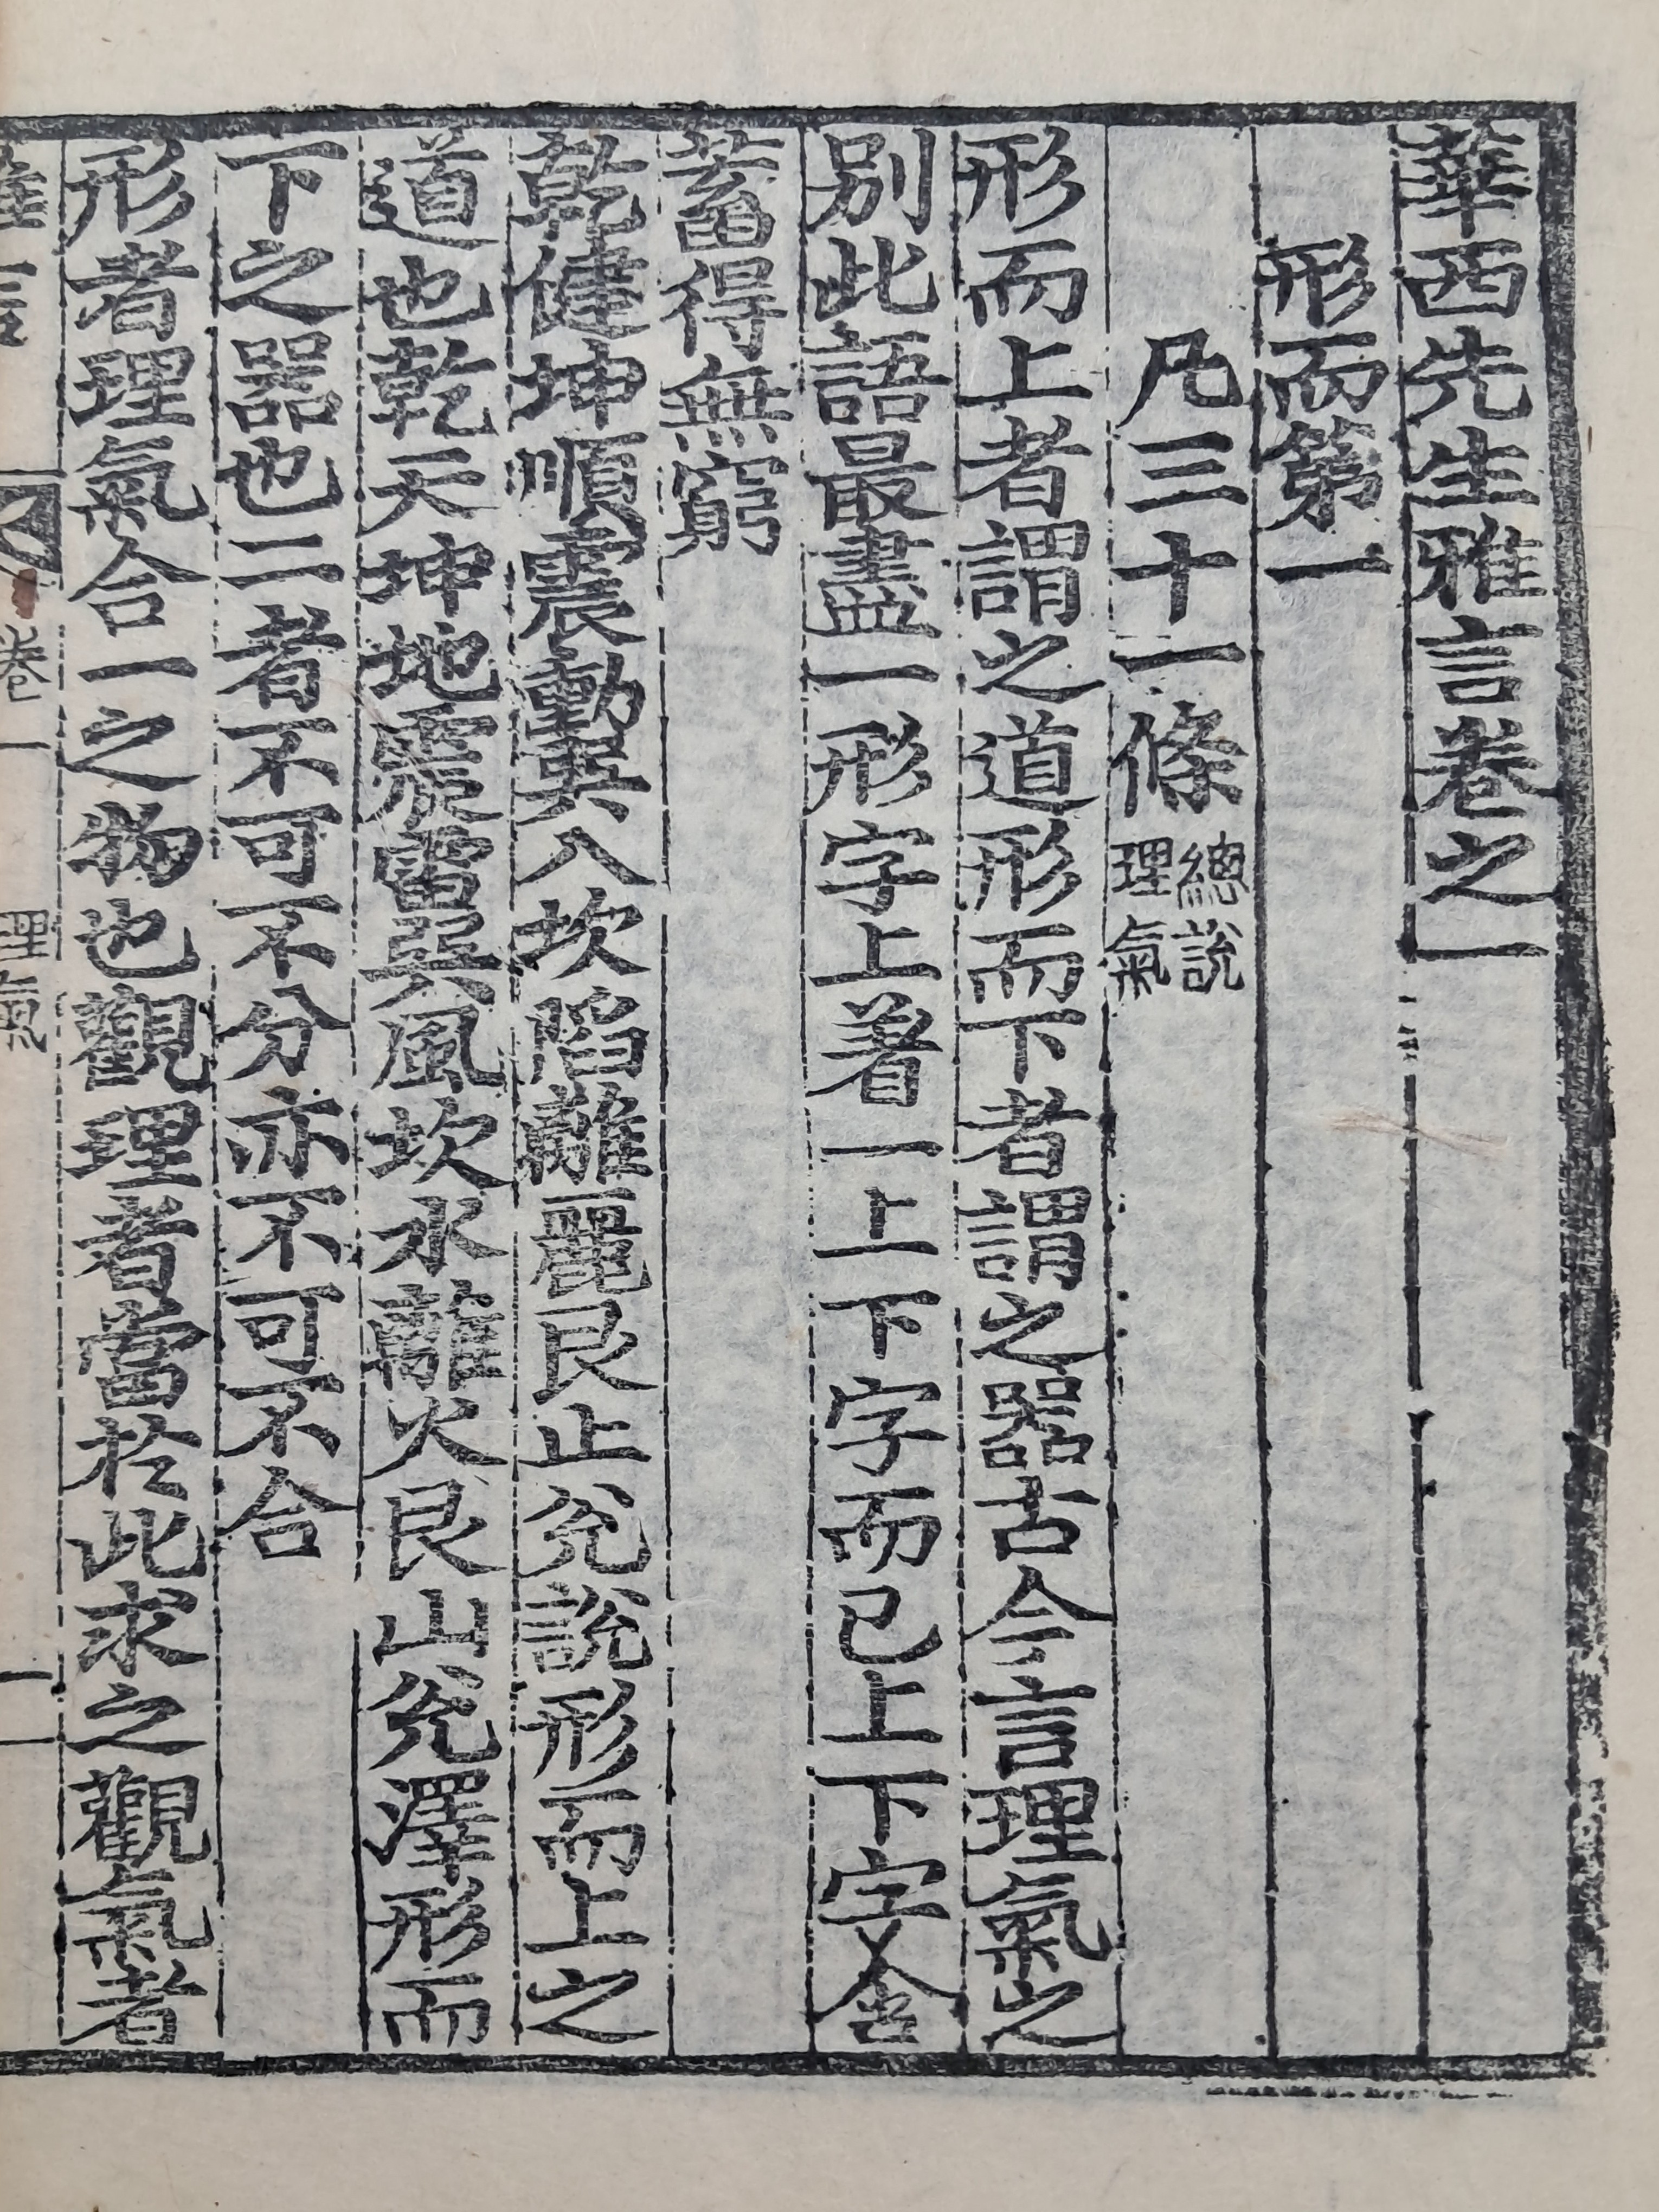 華西先生雅言卷之一
形而第一
凡三十一條 總說理氣
形而上者謂之道形而下者謂之器古今言理氣之
別此語最盡一形字上著一上下字而已上下字含
蓄得無窮
乾健坤順震動巽入坎陷離麗艮止兌說形而上之
道也乾天坤地震雷巽風坎水離火艮山兌澤形而
下之器也二者不可不分亦不可不合
形者理氣合一之物也觀理者當於此求之觀氣者
雅言 卷一 理氣 一